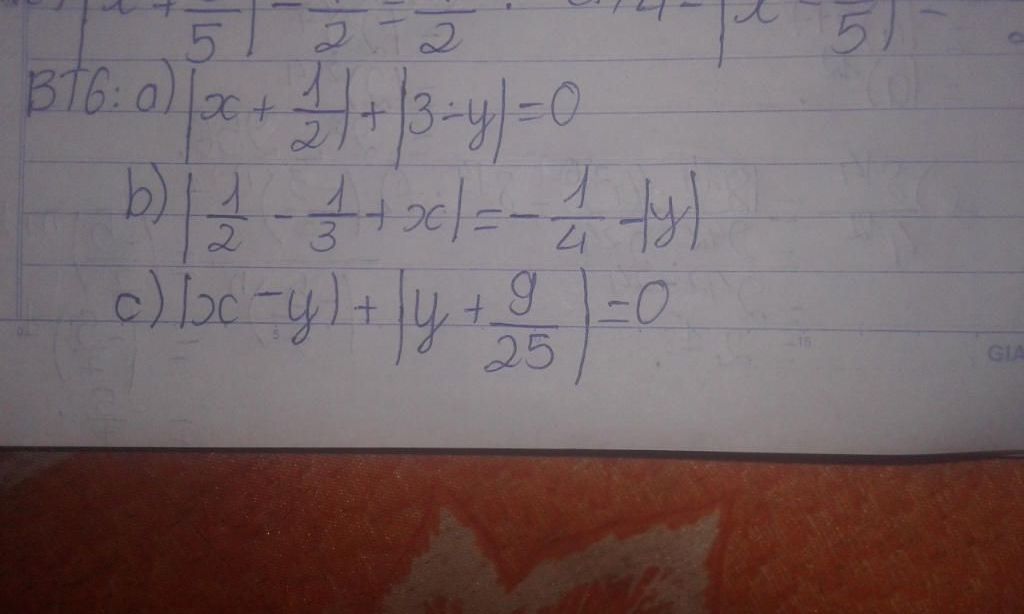 |x + /5| - 1/2 = 1/2 . |x - /5| =
BT6: a) |x + 1/2| + |3 - y| = 0
b) |1/2 - 1/3 + x| = - 1/4 - |y|
c) |x - y| + |y + 9/25| = 0
GIA